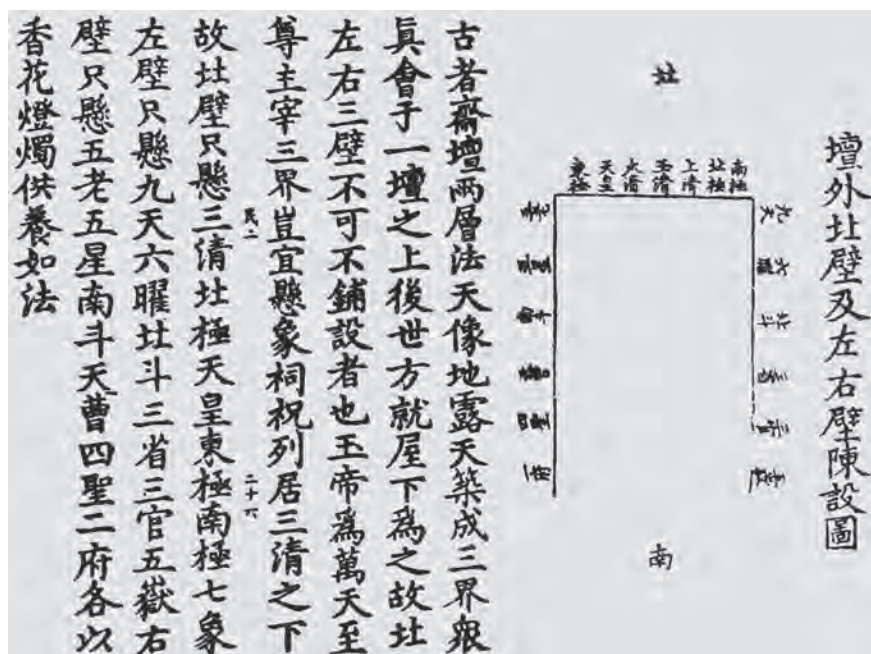 壇外北壁及左右壁陳設圖
北
南極
北極
上清
玉清
太清
天皇
東極
九天
六曜
北斗
三省
三官
五嶽
五老
五星
南斗
天曹
四聖
二府
南
古者齋壇兩層法天像地露天築成三界眾
眞會于一壇之上後世方就屋下爲之故北
左右三壁不可不鋪設者也玉帝爲萬天至
尊主宰三界豈宜懸象祠祝列居三清之下
民二 二十六
故北壁只懸三清北極天皇東極南極七象
左壁只懸九天六曜北斗三省三官五嶽右
壁只懸五老五星南斗天曹四聖二府各以
香花燈燭供養如法